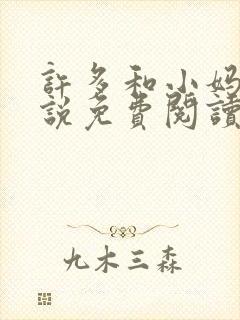 許多和小妈
説免費閱讀
九木三森